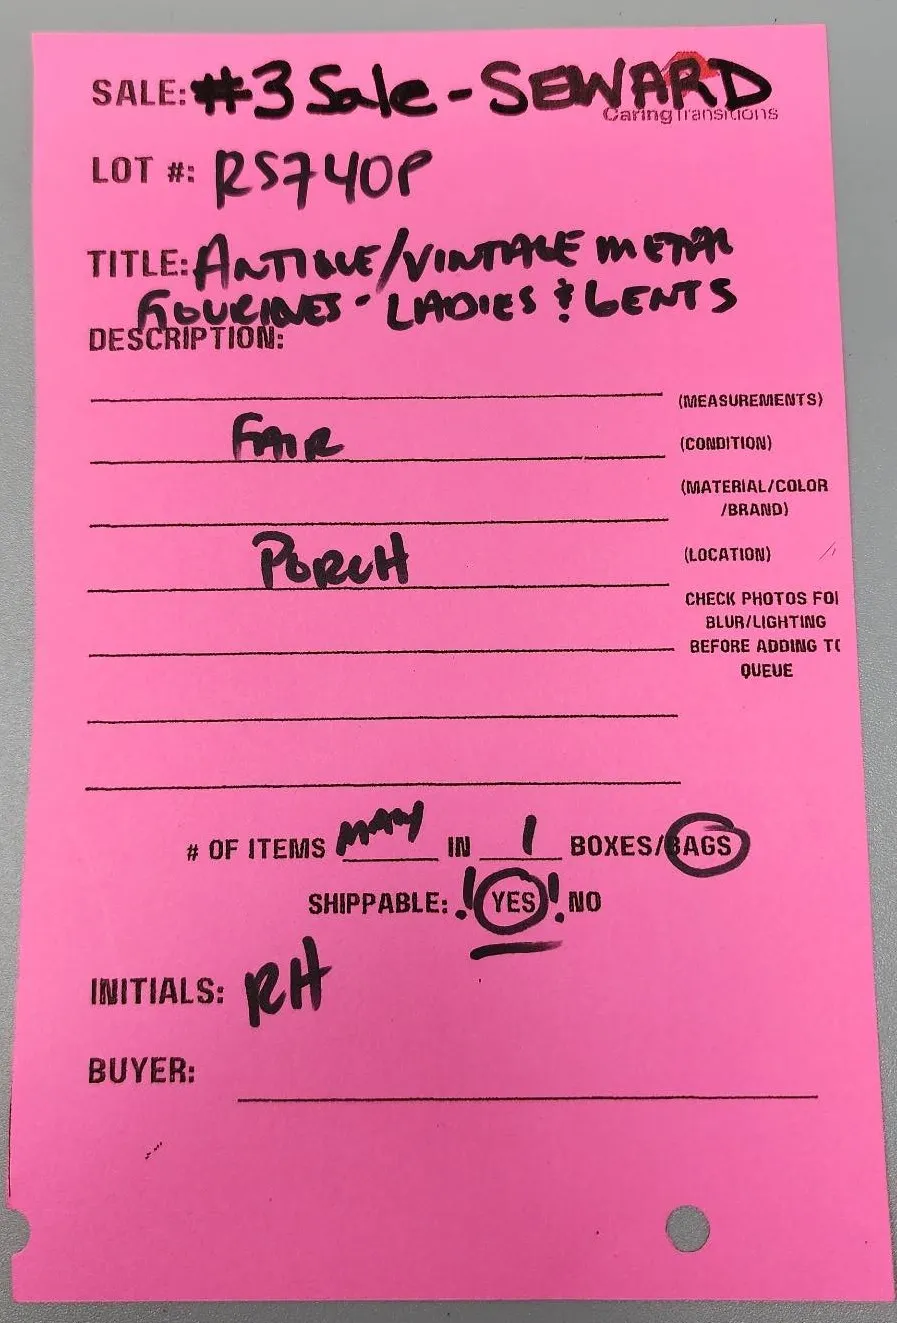 SALE: #3 Sale - SEWARD
CaringTransitions
LOT #: RS740P
TITLE: ANTIQUE/VINTAGE METAL
FIGURINES - LADIES & GENTS
DESCRIPTION:
(MEASUREMENTS)
FAIR (CONDITION)
(MATERIAL/COLOR
/BRAND)
PORCH (LOCATION)
CHECK PHOTOS FOR
BLUR/LIGHTING
BEFORE ADDING TO
QUEUE
# OF ITEMS MANY IN 1 BOXES/BAGS
SHIPPABLE: ! YES ! NO
INITIALS: RH
BUYER: